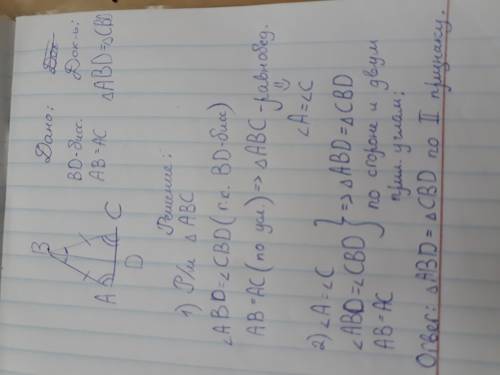 Дано:
BD-бисс.
AB=AC
Док-ь:
△ABD=△CBD
B
A
D
C
Решение:
1) Р/м △ABC
∠ABD=∠CBD (т.к. BD-бисс)
AB=AC (по усл.) => △ABC-равнобед.
∠A=∠C
2) ∠A=∠C
∠ABD=∠CBD } => △ABD=△CBD
AB=AC
по стороне и двум
прил. углам;
Ответ: △ABD=△CBD по II признаку.